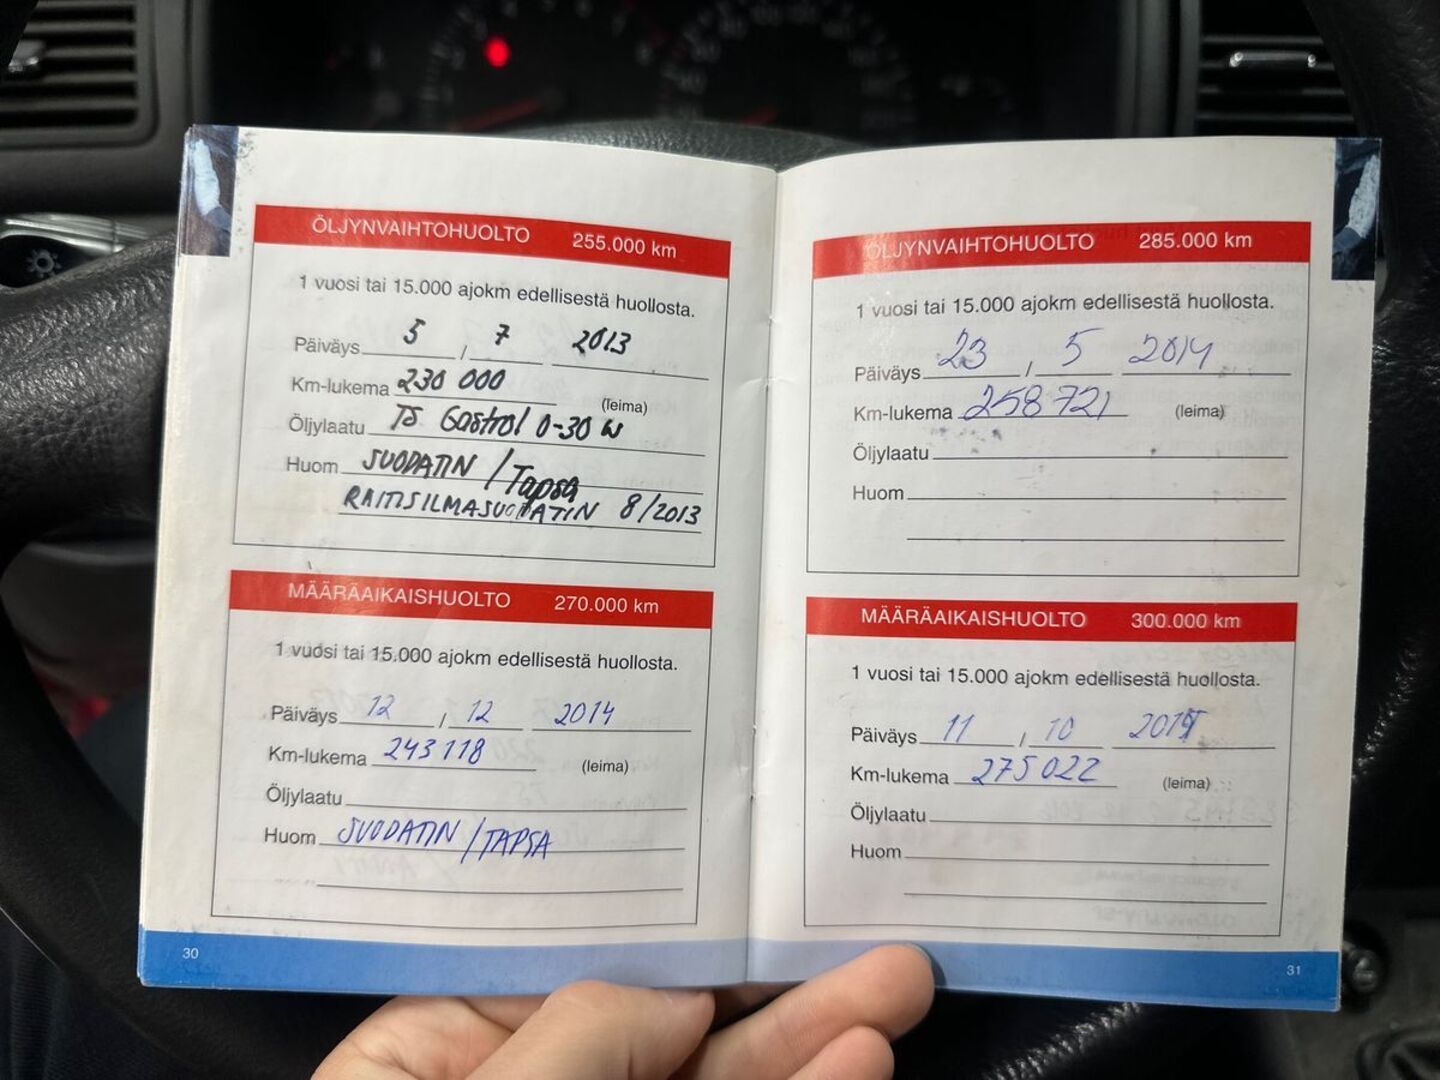 ÖLJYNVAIHTOHUOLTO 255.000 km
1 vuosi tai 15.000 ajokm edellisestä huollosta.
Päiväys 5 / 7 2013
Km-lukema 230 000 (leima)
Öljylaatu TS Castrol 0-30 W
Huom SUODATIN / Tapsa
RAITISILMASUODATIN 8/2013
MÄÄRÄAIKAISHUOLTO 270.000 km
1 vuosi tai 15.000 ajokm edellisestä huollosta.
Päiväys 12 / 12 2014
Km-lukema 243118 (leima)
Öljylaatu
Huom SUODATIN / TAPSA
30
ÖLJYNVAIHTOHUOLTO 285.000 km
1 vuosi tai 15.000 ajokm edellisestä huollosta.
Päiväys 23 / 5 2014
Km-lukema 258 721 (leima)
Öljylaatu
Huom
MÄÄRÄAIKAISHUOLTO 300.000 km
1 vuosi tai 15.000 ajokm edellisestä huollosta.
Päiväys 11 / 10 2015
Km-lukema 275 022 (leima)
Öljylaatu
Huom
31